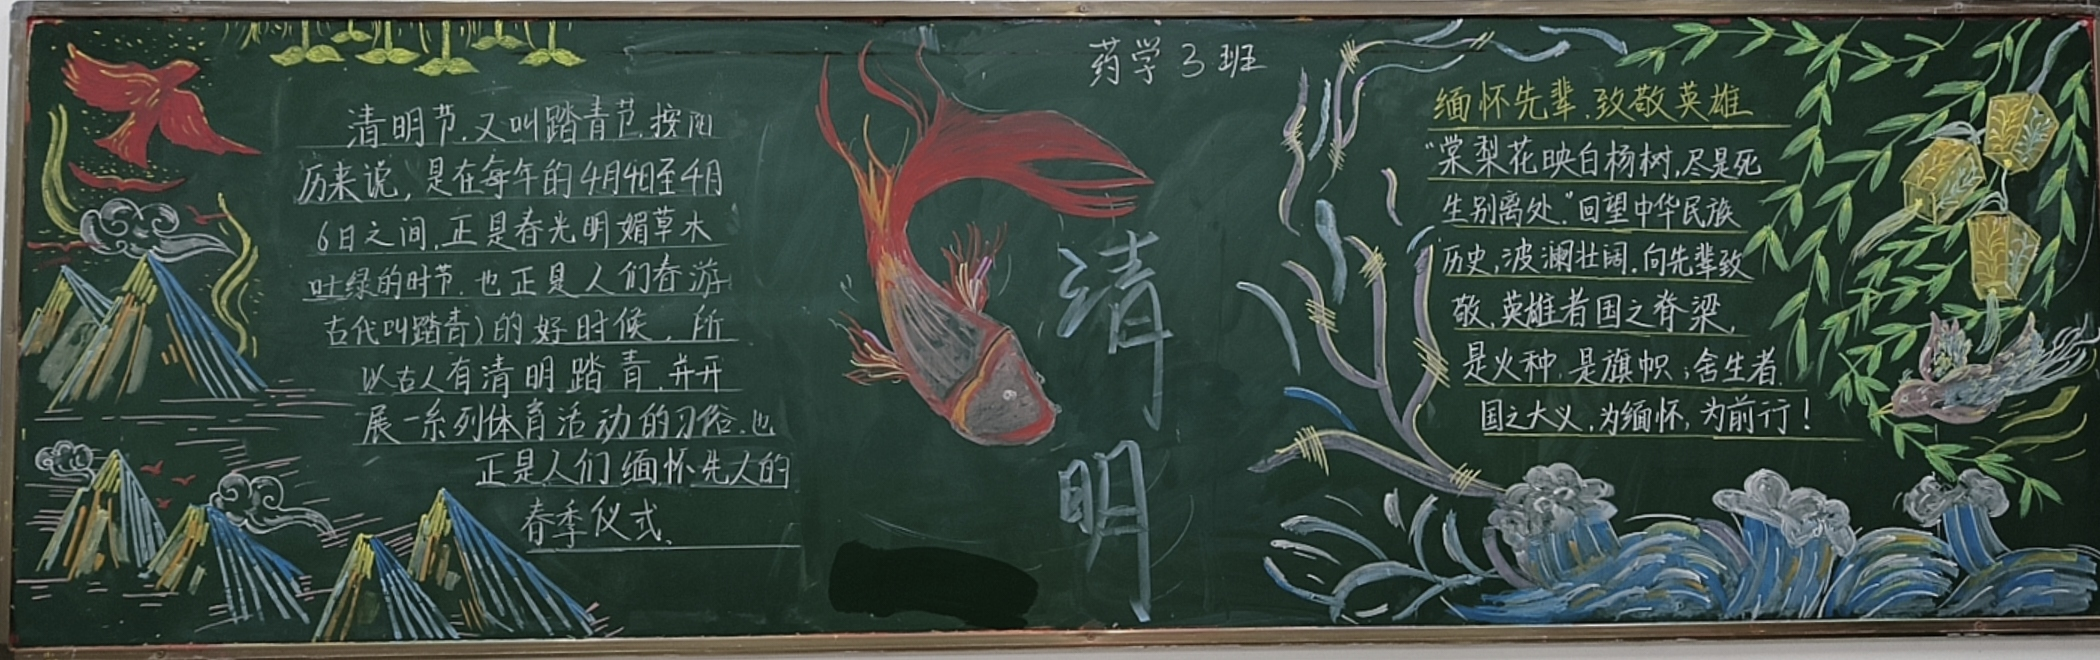 药学3班
清明节,又叫踏青节,按阳
历来说,是在每年的4月4日至4月
6日之间,正是春光明媚草木
吐绿的时节,也正是人们春游
古代叫踏青)的好时候,所
以古人有清明踏青,并开
展一系列体育活动的习俗.也
正是人们缅怀先人的
春季仪式、
清
明
缅怀先辈,致敬英雄
“棠梨花映白杨树,尽是死
生别离处.”回望中华民族
历史,波澜壮阔.向先辈致
敬,英雄者国之脊梁,
是火种,是旗帜;舍生者,
国之大义,为缅怀,为前行!